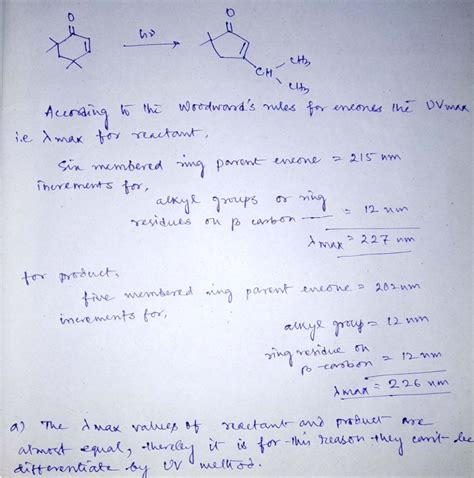 O
O
hν
CH
CH3
CH3
According to the Woodward's rules for enones the UVmax
i.e λmax for reactant,
Six membered ring parent enone = 215 nm
increments for,
alkyl groups or ring
residues on β carbon = 12 nm
λmax = 227 nm
for product,
five membered ring parent enone = 202nm
increments for,
alkyl group = 12 nm
ring residue on
β-carbon = 12 nm
λmax = 226 nm
a) The λmax values of reactant and product are
almost equal, thereley it is for this reason they can't be
differentiate by UV method.